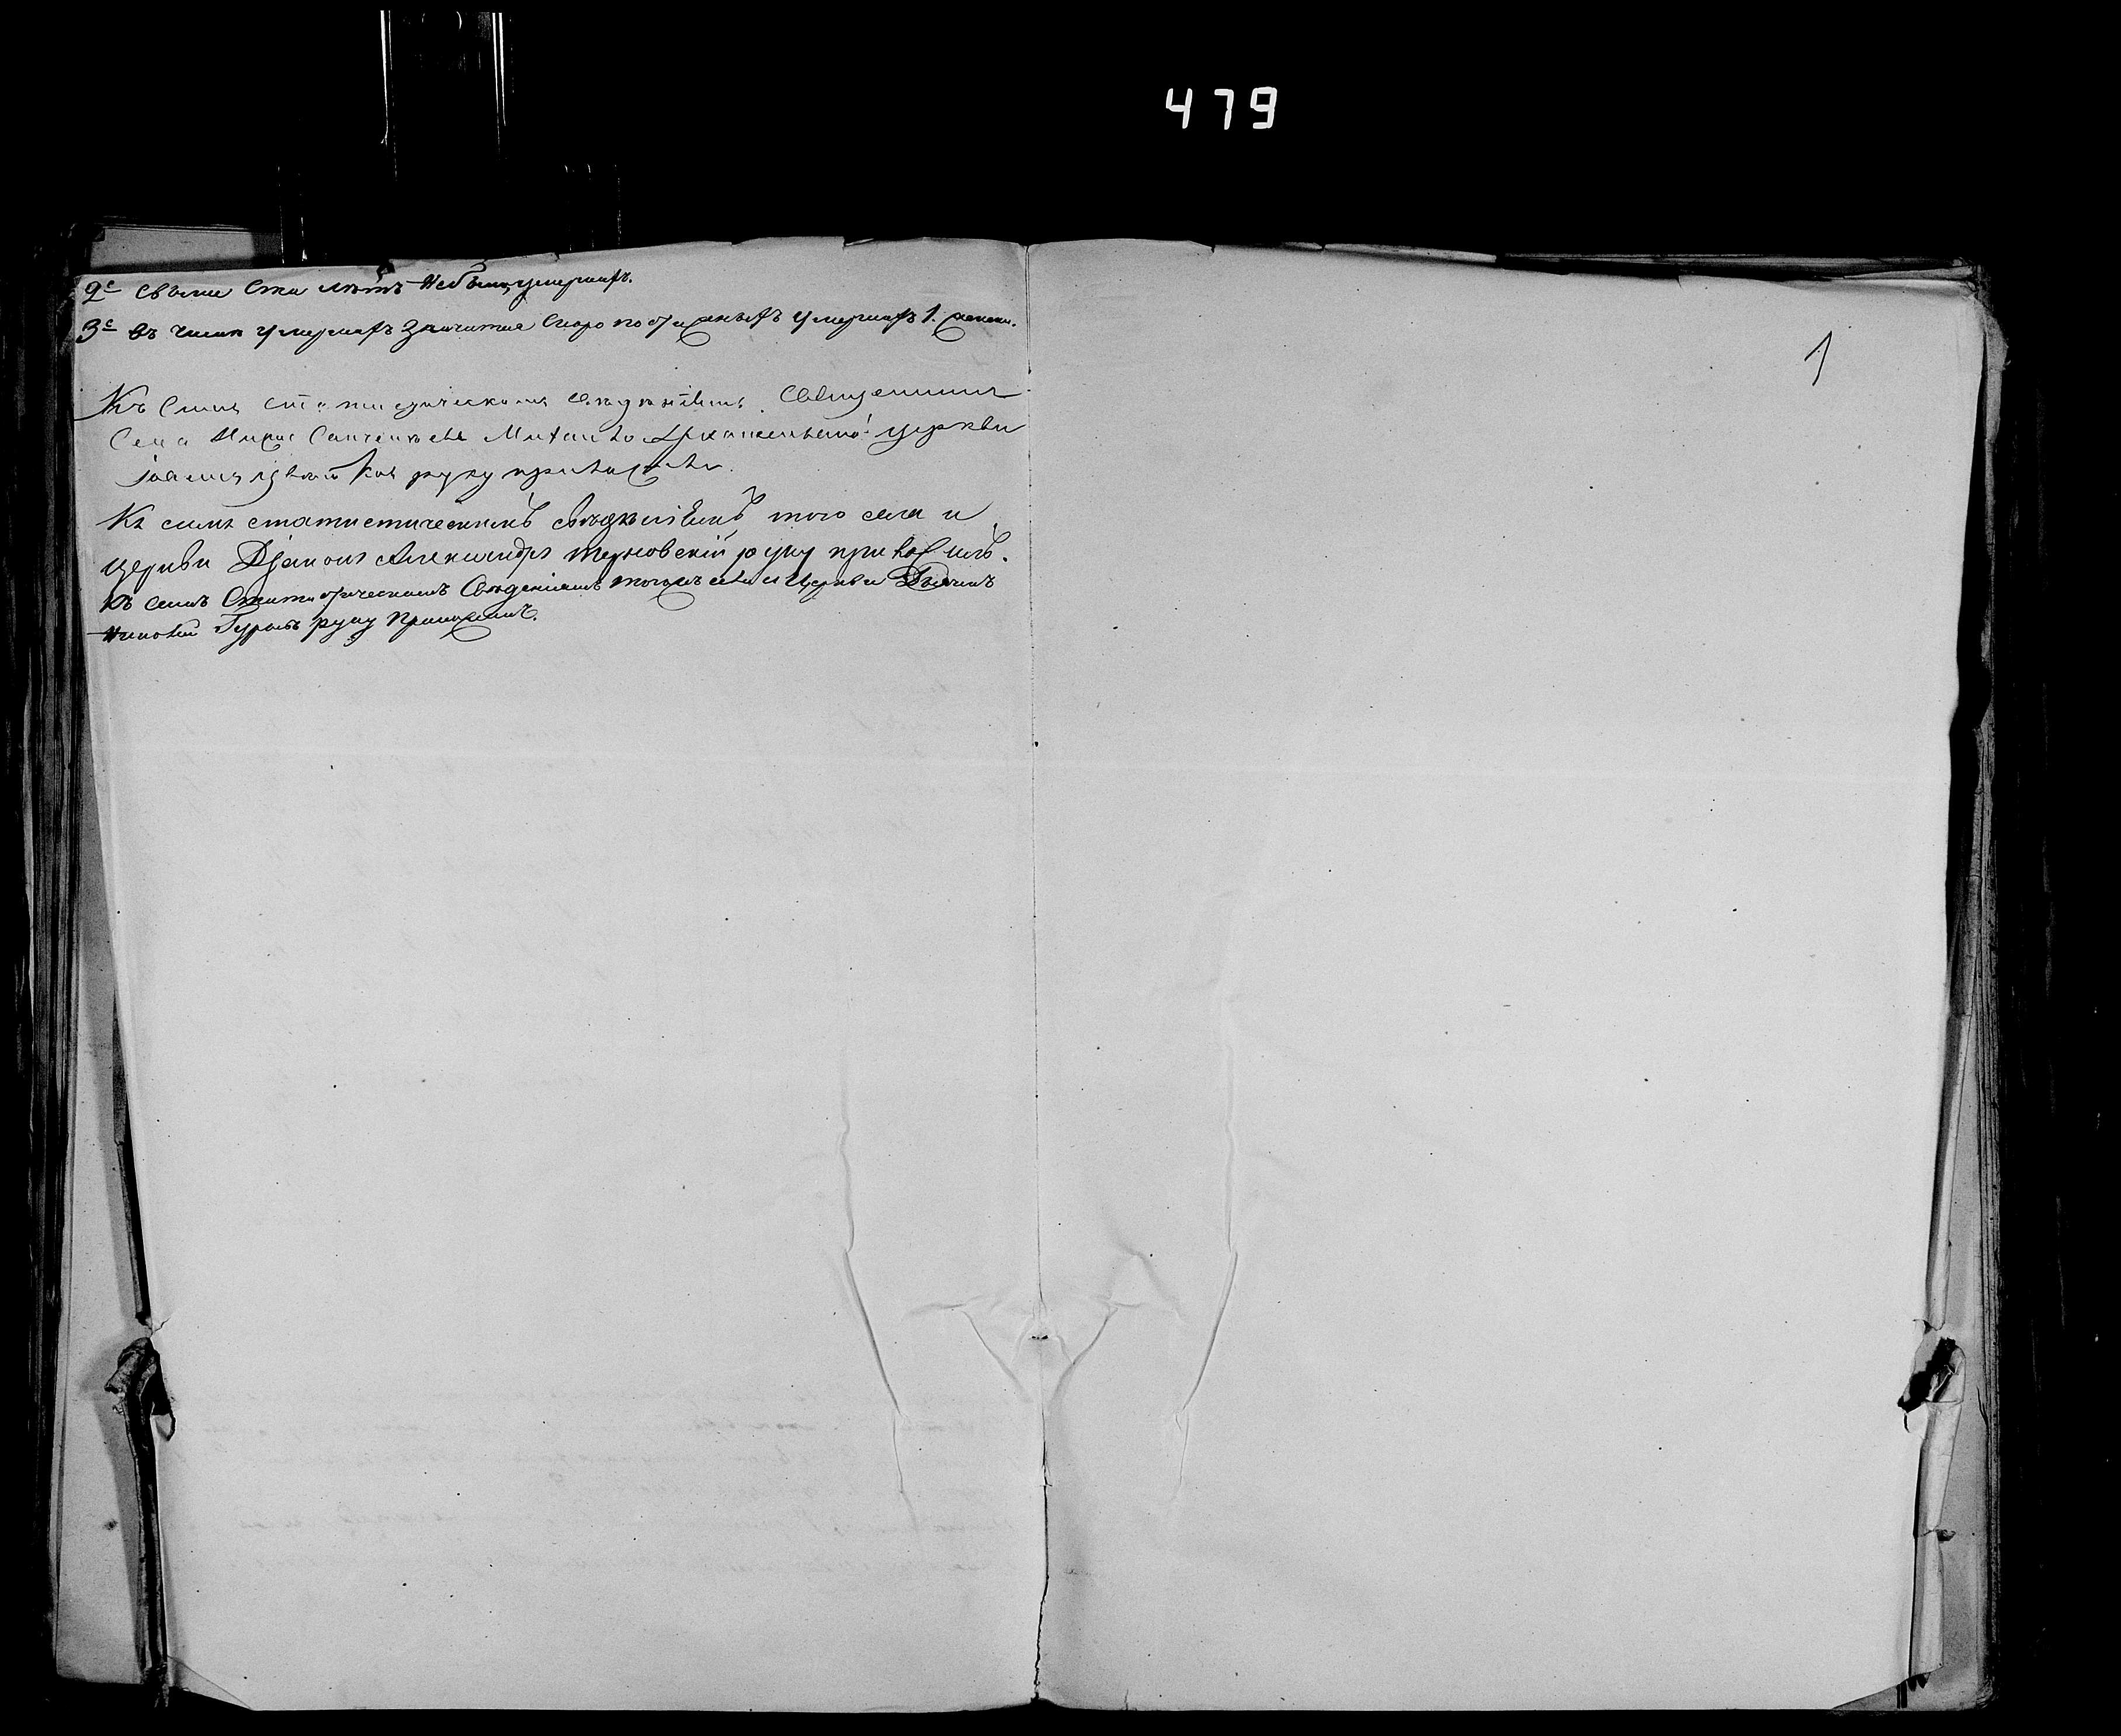 479
1
2е свыше Ста лѣтъ небыло умершихъ.
3е въ числѣ умершихъ значится Скоропостижныхъ умершихъ 1. женска.
Къ Симъ статистическимъ свѣдѣніямъ Священникъ
Села Михайло Архангельской церкви
Іоаннъ руку приложилъ.
Къ симъ статистическимъ свѣдѣніямъ того села и
церкви Діаконъ Александръ Терновскій руку приложилъ.
Къ симъ Статистическимъ Свѣденіямъ тогожъ села и Церкви Дьячекъ
Гурьевъ руку Приложилъ.